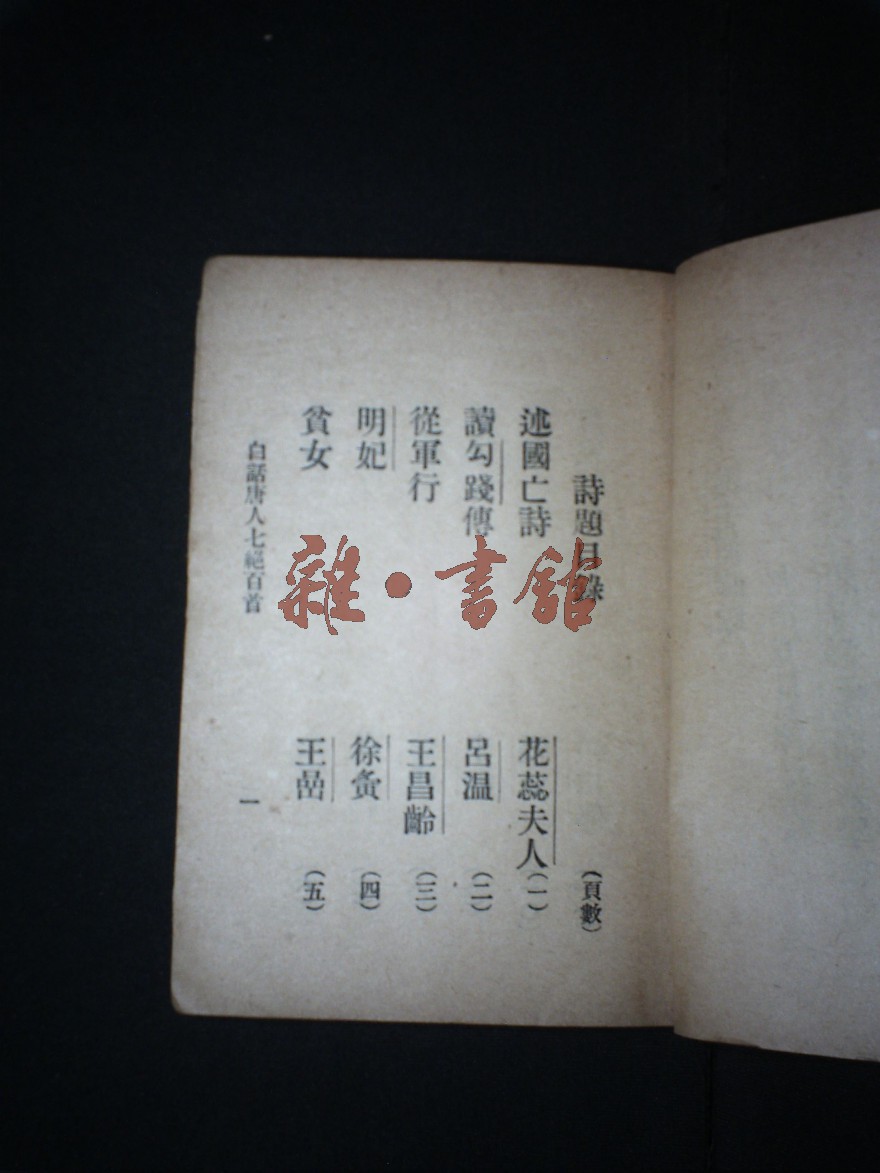 詩題目錄 (頁數)
述國亡詩 花蕊夫人 (一)
讀勾踐傳 呂温 (二)
從軍行 王昌齡 (三)
明妃 徐夤 (四)
貧女 王喦 (五)
白話唐人七絕百首 一
雜·書館